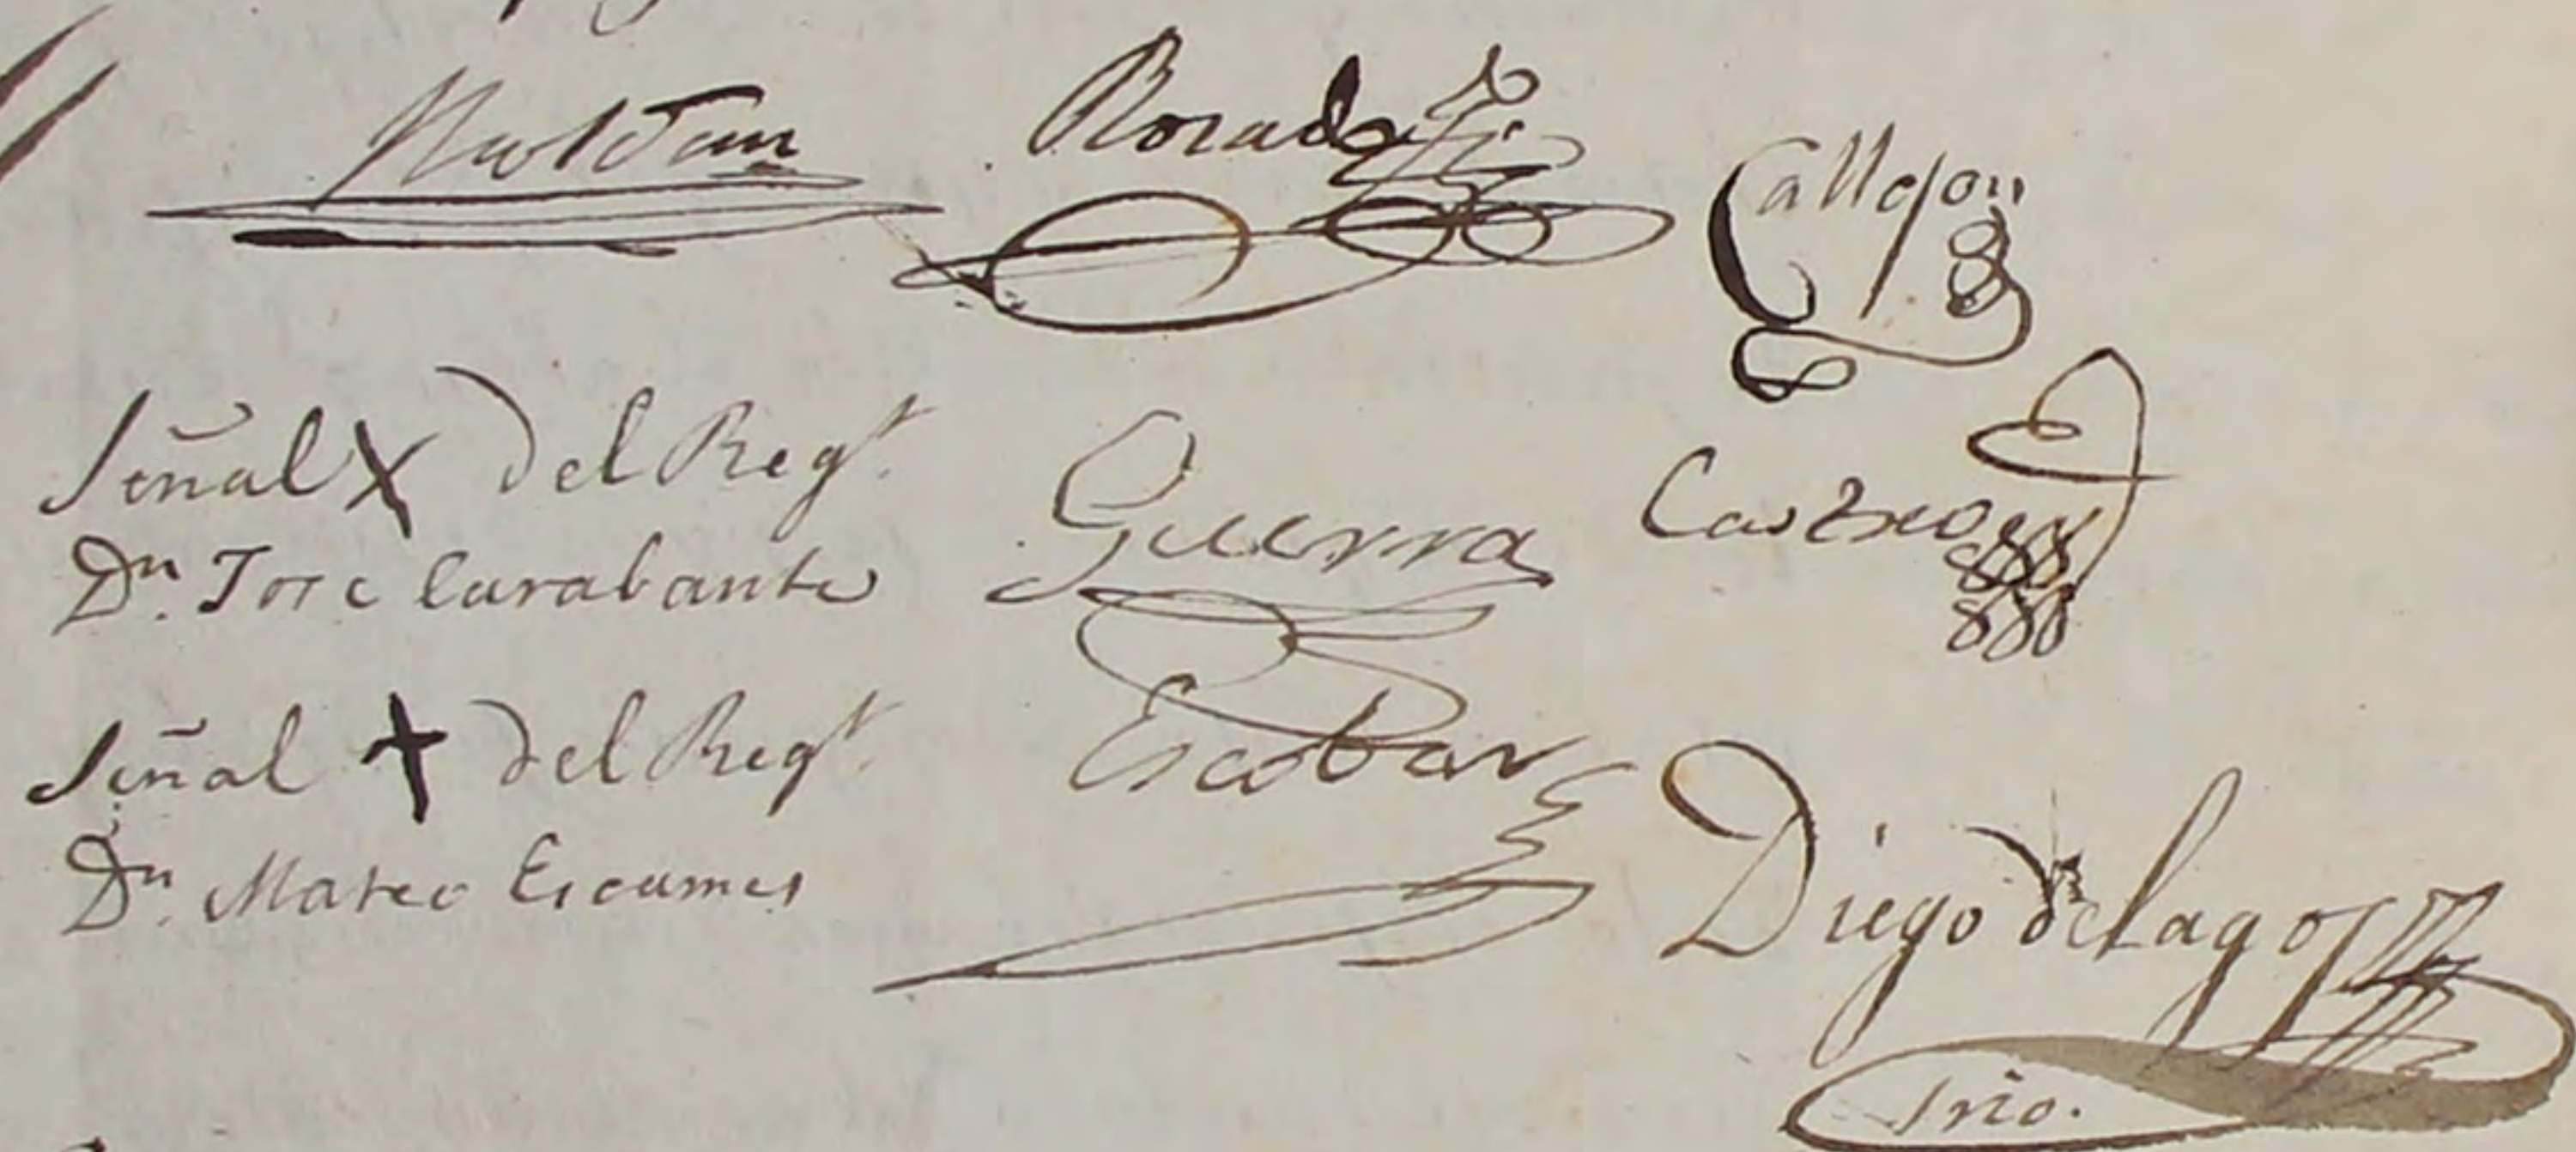 Roldan Rosado Callejon
Señal X del Reg.r
Dn. Jose Carabante
Guerra Castro
Señal + del Reg.r
Dn. Mateo Escames
Escobar
Diego de Lagos
Srio.